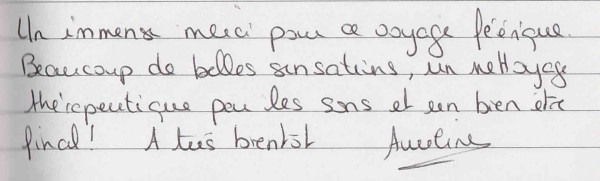 Un immense merci pour ce voyage féérique.
Beaucoup de belles sensations, un nettoyage
thérapeutique par les sons et un bien être
final! A très bientôt Aureline